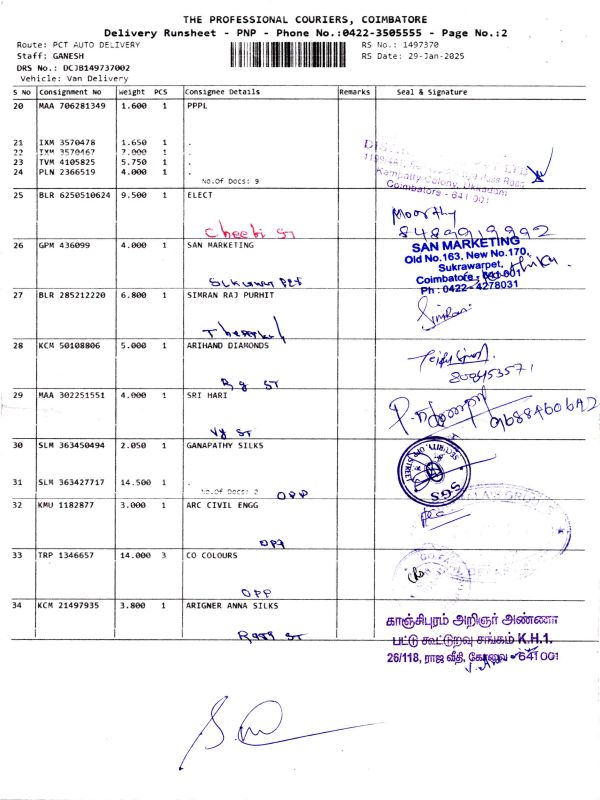 THE PROFESSIONAL COURIERS, COIMBATORE
Delivery Runsheet - PNP - Phone No.:0422-3505555 - Page No.:2
Route: PCT AUTO DELIVERY RS No.: 1497370
Staff: GANESH RS Date: 29-Jan-2025
DRS No.: DCJB149737002
Vehicle: Van Delivery
S No Consignment No Weight PCS Consignee Details Remarks Seal & Signature
20 MAA 706281349 1.600 1 PPPL
21 IXM 3570478 1.650 1 .
22 IXM 3570467 7.000 1 .
23 TVM 4105825 5.750 1 .
24 PLN 2366519 4.000 1 .
No.Of Docs: 9
Kampatty Colony, Ukkadam
Coimbatore - 641 001
25 BLR 6250510624 9.500 1 ELECT
Moorthy
8489919992
26 GPM 436099 4.000 1 SAN MARKETING
SAN MARKETING
Old No.163, New No.170,
Sukrawarpet,
Coimbatore - 641 001
Ph : 0422 - 4278031
27 BLR 285212220 6.800 1 SIMRAN RAJ PURHIT
Simran
28 KCM 50108806 5.000 1 ARIHAND DIAMONDS
R g ST
29 MAA 302251551 4.000 1 SRI HARI
Vy ST
30 SLM 363450494 2.050 1 GANAPATHY SILKS
SGS
31 SLM 363427717 14.500 1 .
No.Of Docs: 2
OPP
32 KMU 1182877 3.000 1 ARC CIVIL ENGG
OPP
33 TRP 1346657 14.000 3 CO COLOURS
OPP
34 KCM 21497935 3.800 1 ARIGNER ANNA SILKS
காஞ்சிபுரம் அறிஞர் அண்ணா
பட்டு கூட்டுறவு சங்கம் K.H.1.
26/118, ராஜ வீதி, கோவை - 641 001